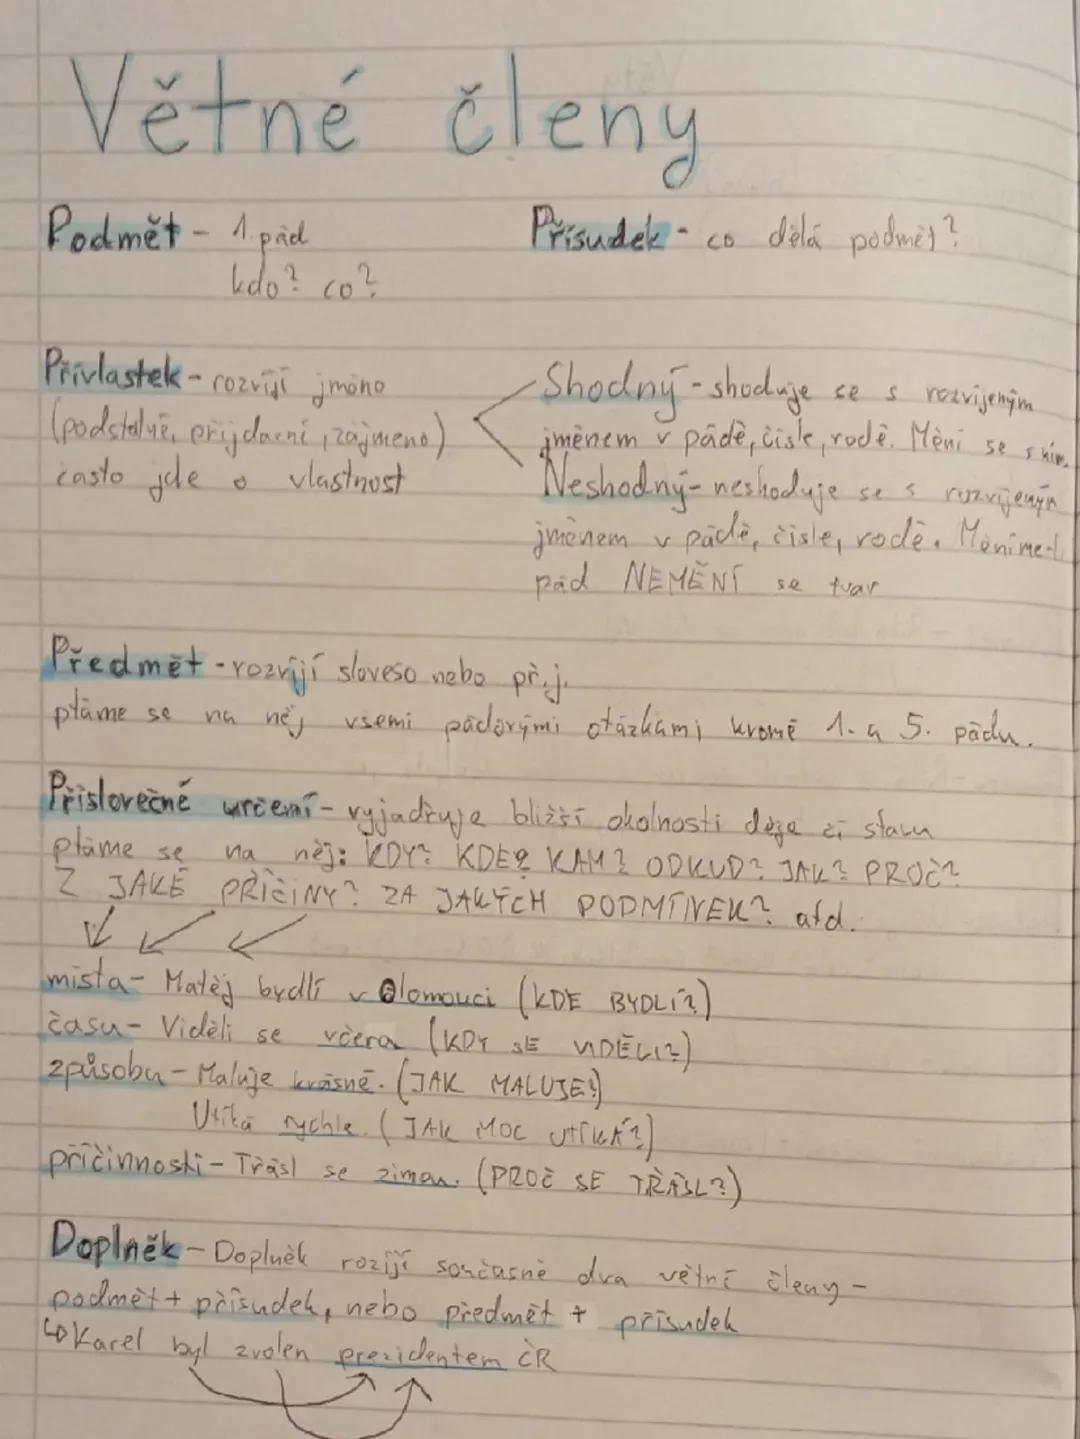 Větné členy
Podmět - 1. pád
kdo? co?
Přísudek - co dělá podmět?
Přívlastek - rozvíjí jméno
(podstatné, přijdavní, zájmeno)
často jde o vlastnost
Shodný - shoduje se s rozvíjeným
jménem v pádě, čísle, rodě. Mění se s ním.
Neshodný - neshoduje se s rozvíjeným
jménem v pádě, čísle, rodě. Měníme-li
pád NEMĚNÍ se tvar
Předmět - rozvíjí sloveso nebo př.j.
ptáme se na něj všemi pádovými otázkami kromě 1. a 5. pádu.
Příslovečné určení - vyjadřuje bližší okolnosti děje či stavu
ptáme se na něj: KDY? KDE? KAM? ODKUD? JAK? PROČ?
Z JAKÉ PŘÍČINY? ZA JAKÝCH PODMÍNEK? atd.
místa - Matěj bydlí v Olomouci (KDE BYDLÍ?)
času - Viděli se včera (KDY SE VIDĚLI?)
způsobu - Maluje krásně. (JAK MALUJE?)
Utíká rychle. (JAK MOC UTÍKÁ?)
příčinnosti - Třásl se zimou. (PROČ SE TŘÁSL?)
Doplněk - Doplněk rozijí současně dva větné členy -
podmět + přísudek, nebo předmět + přísudek
↳ Karel byl zvolen prezidentem ČR